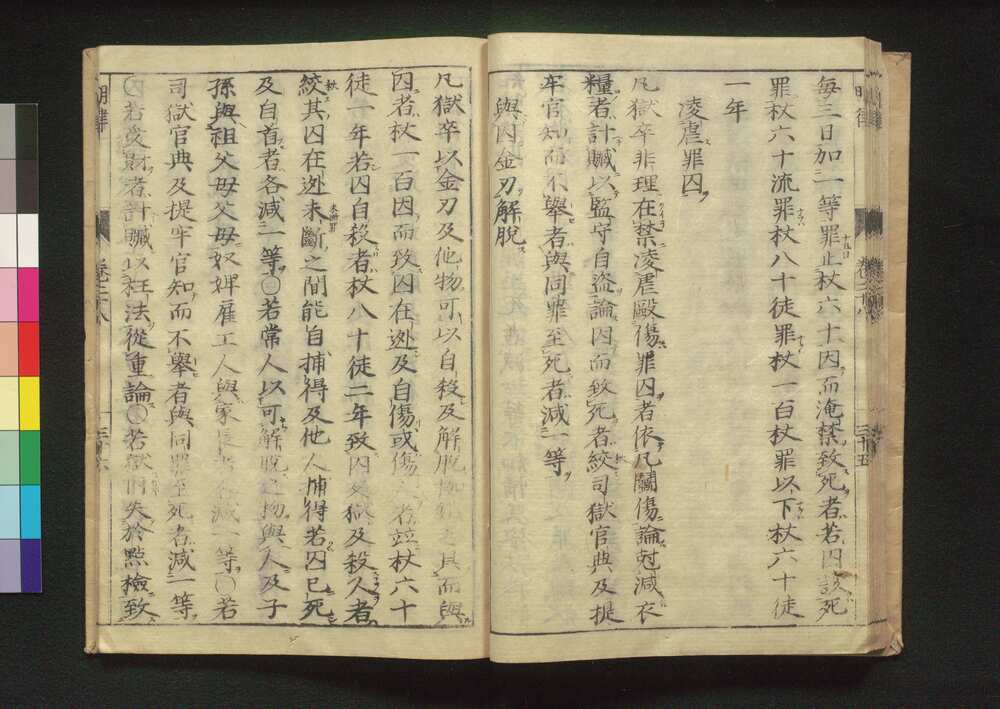 明律
卷二十八
三十五
每三日加一等罪止杖六十因而淹禁致死者若囚該死
罪杖六十流罪杖八十徒罪杖一百杖罪以下杖六十徒
一年
凌虐罪囚
凡獄卒非理在禁凌虐毆傷罪囚者依凡鬬傷論尅減衣
糧者計贓以監守自盗論因而致死者絞司獄官典及提
牢官知而不舉者與同罪至死者減一等
與囚金刃解脫
凡獄卒以金刃及他物可以自殺及解脫之具而與
囚者杖一百因而致囚在逃及自傷或傷人者並杖六十
徒一年若囚自殺者杖八十徒二年致囚反獄及殺人者
絞其囚在逃未斷之間能自捕得及他人捕得若囚已死
及自首者各減一等〇若常人以可解脫之物與人及子
孫與祖父母父母奴婢雇工人與家長者減一等〇若
司獄官典及提牢官知而不舉者與同罪至死者減一等
〇若受財者計贓以枉法從重論〇若獄卒失於點檢致
明律
卷二十八
三十六